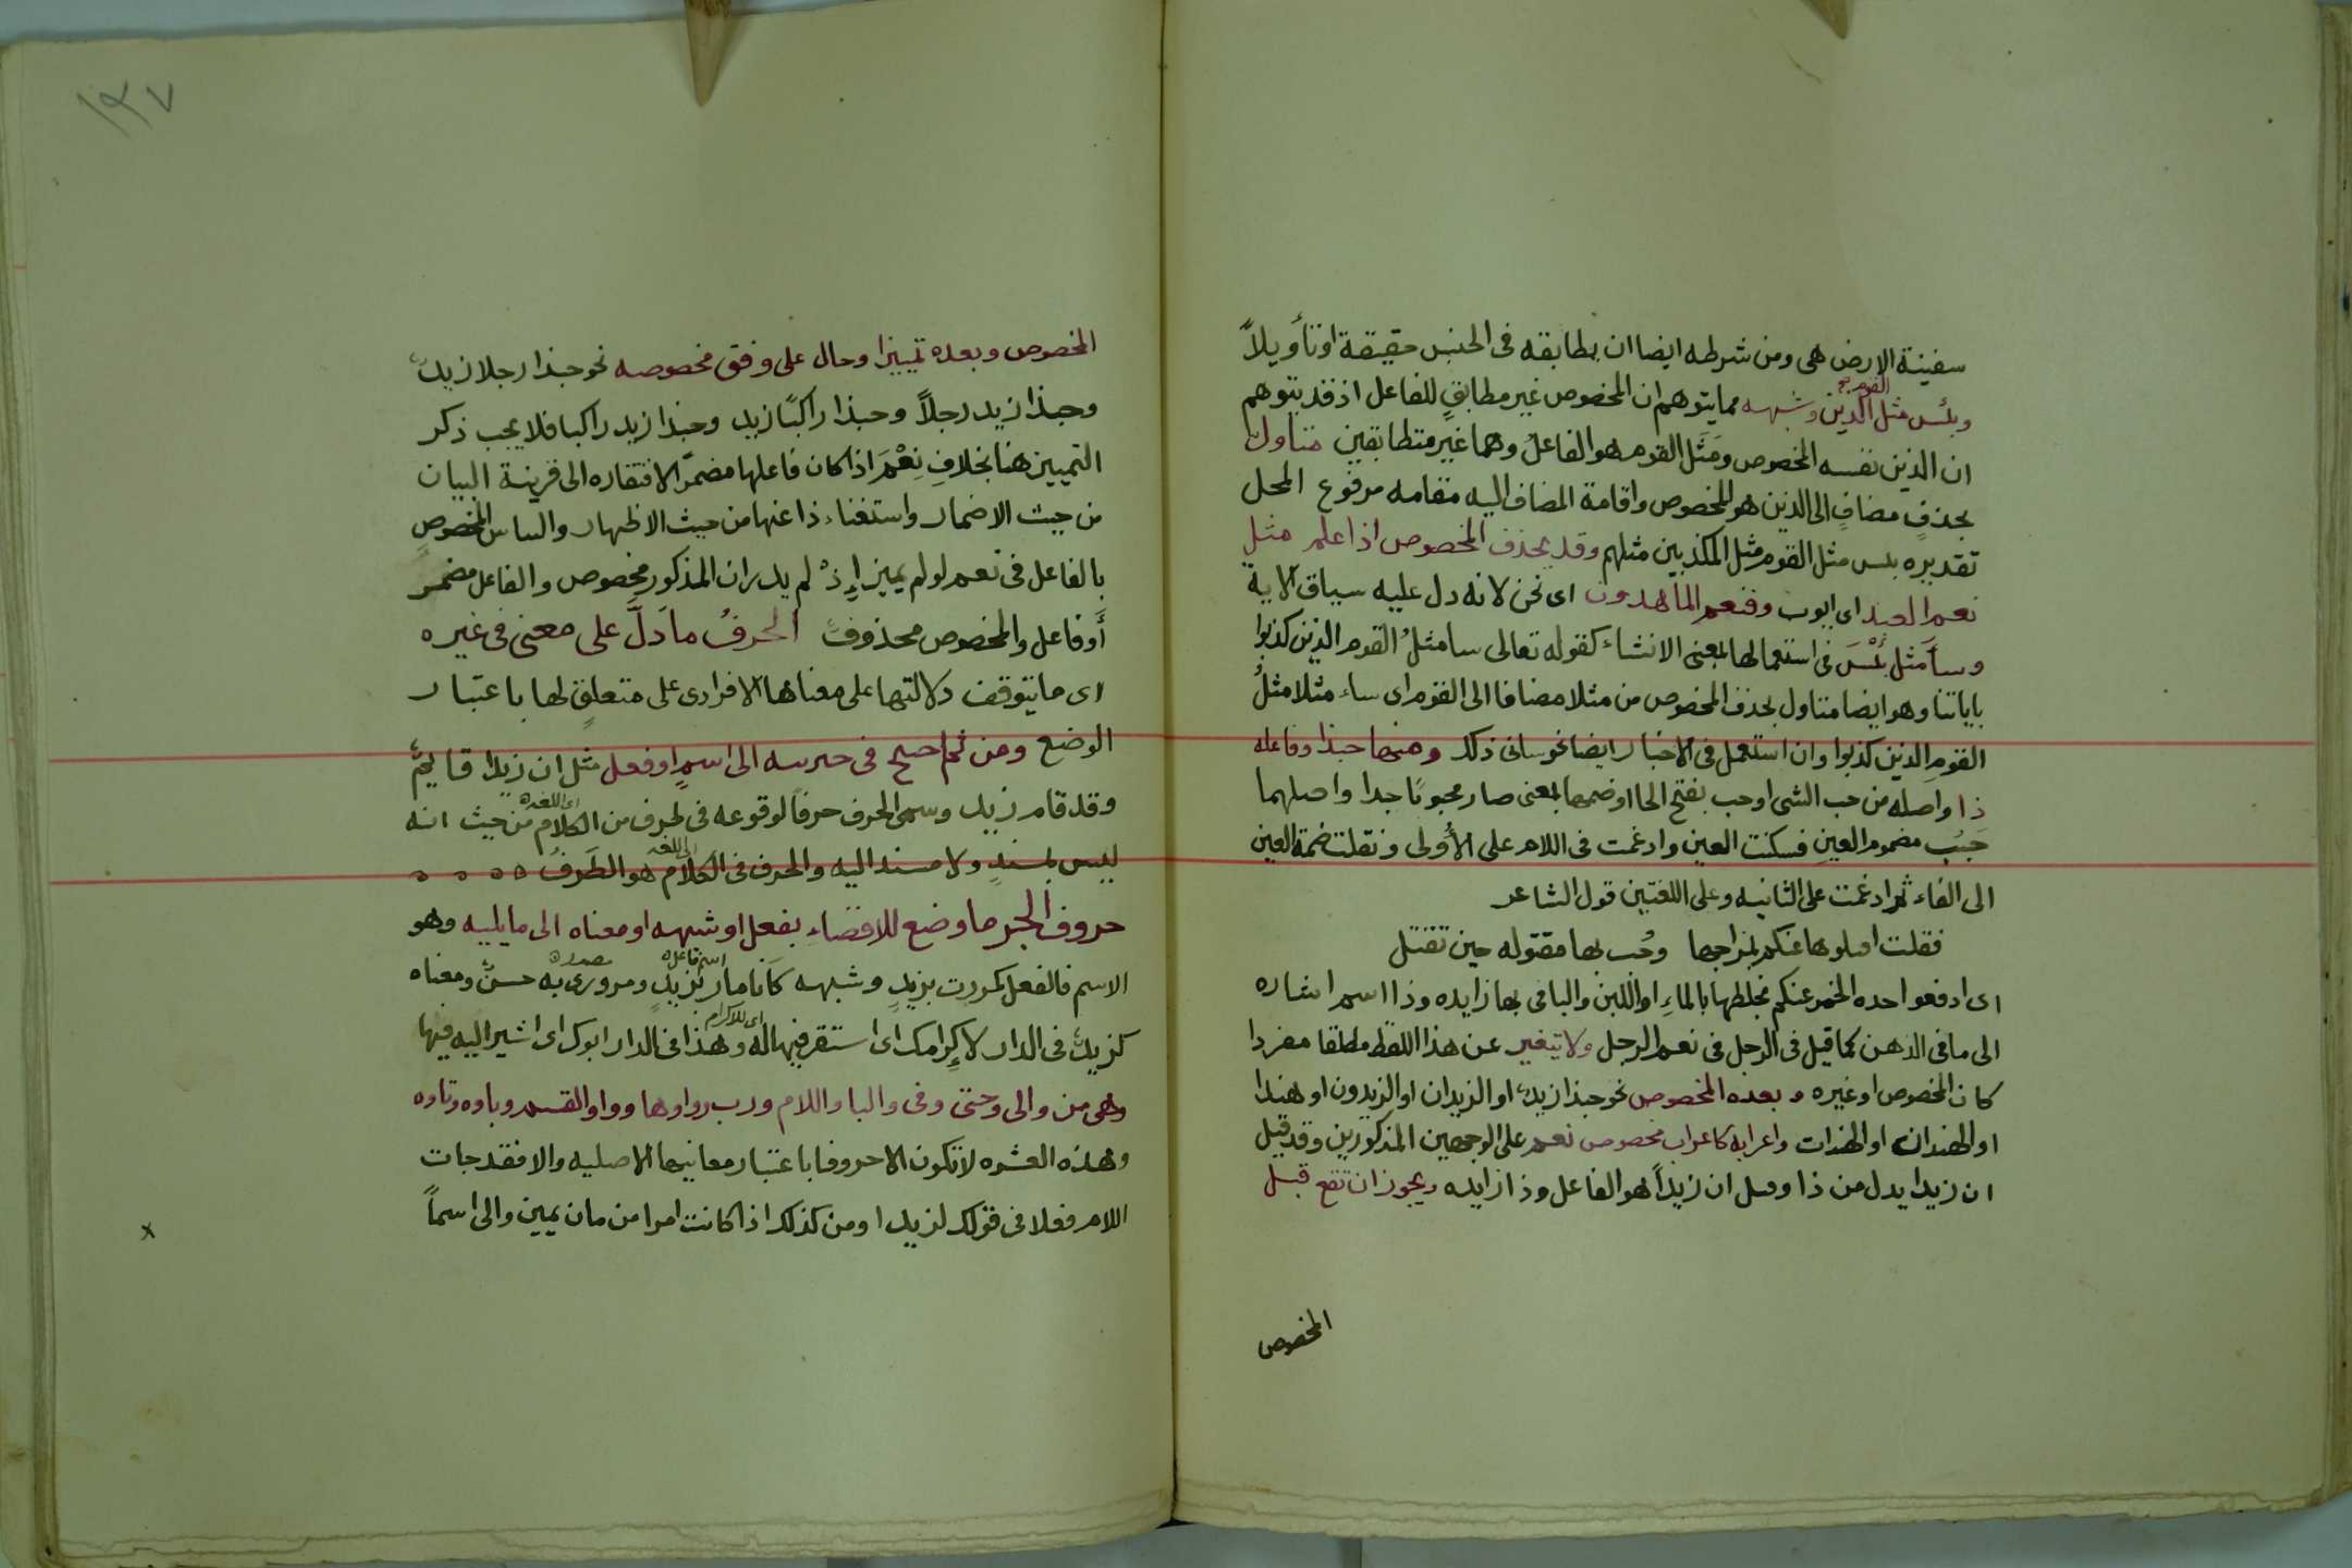 سفينة الارض هى ومن شرطه ايضا ان يطابقه فى الجنس حقيقة او تأويلاً
وبئس مثل القوم الذين وشبهه مما يتوهم ان المخصوص غير مطابقٍ للفاعل اذ قد يتوهم
ان الذين نفسه المخصوص ومَثَل القوم هو الفاعلُ وهما غير متطابقين متاول
بحذفِ مضافٍ الى الذين هو المخصوص واقامة المضاف اليه مقامه مرفوع المحل
تقديره بئس مثل القوم مثل المكذبين مثلهم وقد يحذف المخصوص اذا علم مثل
نعم العبد اى ايوب وفنعم الماهدون اى نحن لانه دل عليه سياق الاية
وسأ مَثل بئْسَ فى استعمالها بمعنى الانشاء كقوله تعالى سا مثلُ القوم الذين كذبوا
باياتنا وهو ايضا متاول بحذف المخصوص من مثلا مضافا الى القوم اى ساء مثلا مثلُ
القوم الذين كذبوا وان استعمل فى الاخبار ايضا نحو سانى ذلك ومنها حبذا وفاعله
ذا واصله من حب الشى او حب بفتح الحا او ضمها بمعنى صار محبوبًا جدا واصلهما
حَبُب مضموم العين فسكنت العين وادغمت فى اللام على الأولى ونقلت ضمة العين
الى الفاء ثم ادغمت على الثانيه وعلى اللغتين قول الشاعر
فقلت اقتلوها عنكم بمزاجها وحُب بها مقتوله حين تقتل
اى ادفعوا حده الخمر عنكم بخلطها بالماءِ او اللبن والبا فى بها زايده وذا اسم اشاره
الى ما فى الذهن كما قيل فى الرجل فى نعم الرجل ولا يتغير عن هذا اللفظ مطلقا مفردا
كان المخصوص او غيره وبعده المخصوص نحو حبذا زيدٌ او الزيدان او الزيدون او هندا
او الهندان او الهندات واعرابه كاعراب مخصوص نعم على الوجهين المذكورين وقد قيل
ان زيدا بدل من ذا وقيل ان زيداً هو الفاعل وذا زايده ويجوز ان تقع قبل
المخصوص
١٣٧
المخصوص وبعده تمييزا وحال على وفق مخصوصه نحو حبذا رجلا زيدٌ
وحبذا زيد رجلاً وحبذا راكبًا زيد وحبذا زيد راكبا فلا يجب ذكر
التمييز هنا بخلافِ نِعْمَ اذا كان فاعلها مضمرًا لافتقاره الى قرينة البيان
من حيث الاضمار واستغناء ذا عنها من حيث الاظهار والتباس المخصوصِ
بالفاعل فى نعم لو لم يميز إِذْ لم يدر ان المذكور مخصوص والفاعل مضمر
أَو فاعل والمخصوص محذوف الحرفُ ما دَلَّ على معنى فى غيره
اى ما يتوقف دلالتها على معناها الافرادى على متعلقٍ لها باعتبار
الوضع ومن ثم احتيج فى جزئيته الى اسمٍ او فعل مثل ان زيدا قايمٌ
وقد قام زيد وسمى الحرف حرفًا لوقوعه فى طرف من الكلام من حيث انه
اى اللغه
ليس بمسندٍ ولا مسند اليه والحرف فى الكلام هو الطَرفُ
اى اللغه
حروف الجر ما وضع للافضاءِ بفعل او شبهه او معناه الى ما يليه وهو
الاسم فالفعل كمررت بزيدٍ وشبهه كأنا مار بزيدٍ ومرورى به حسنٌ ومعناه
اسم فاعل مصدر
كزيدٌ فى الدار لاكِرامك اى استقر فيها له وهذا فى الدار ابوك اى اشير اليه فيها
اى للاكرام
وهى من والى وحتى وفى والبا واللام ورب وواوها وواو القسم وباوه وتاوه
وهذه العشره لا تكون الا حروفا باعتبار معانيها الاصليه والا فقد جات
اللام فعلا فى قولك لزيدا ومن كذلك اذا كانت امرا من مان يمين والى اسماً